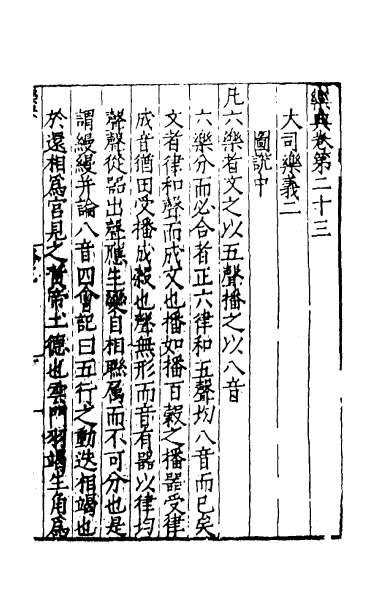 樂典卷第二十三
大司樂義二
圖說中
凡六樂者文之以五聲播之以八音
六樂分而必合者正六律和五聲均八音而已矣
文者律和聲而成文也播如播百穀之播器受律
成音猶田受播成穀也聲無形而音有器以律均
聲聲從器出聲應生變自相聯屬而不可分也是
謂縵縵并論八音四會記曰五行之動迭相竭也
於還相為宮見之黃帝土德也雲門羽竭生角為